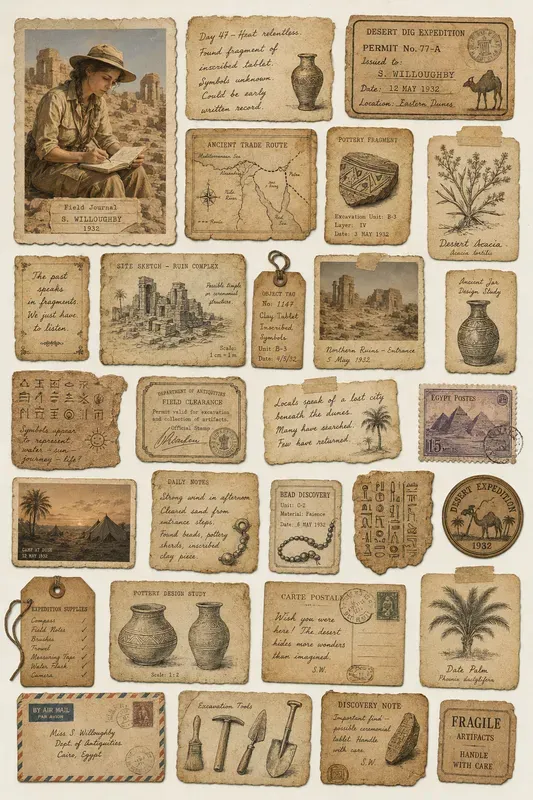 Field Journal
S. WILLOUGHBY
1932
Day 47 - Heat relentless.
Found fragment of
inscribed tablet.
Symbols unknown.
Could be early
written record.
DESERT DIG EXPEDITION
PERMIT No. 77-A
Issued to:
S. WILLOUGHBY
Date: 12 MAY 1932
Location: Eastern Dunes
ANCIENT TRADE ROUTE
Mediterranean Sea
Nile
River
POTTERY FRAGMENT
Excavation Unit: B-3
Layer: IV
Date: 3 MAY 1932
Desert Acacia
Acacia tortilis
The past
speaks
in fragments.
We just have
to listen.
SITE SKETCH - RUIN COMPLEX
Possible temple
or ceremonial
structure.
Scale:
1 cm = 1 m
OBJECT TAG
No: 1147
Clay Tablet
Inscribed
Symbols
Unit: B-3
Date: 4/5/32
Northern Ruins - Entrance
5 May 1932
Ancient Jar
Design Study
Symbols appear
to represent
water - sun
journey - life?
DEPARTMENT OF ANTIQUITIES
FIELD CLEARANCE
Permit valid for excavation
and collection of artifacts.
Official Stamp
Locals speak of a lost city
beneath the dunes.
Many have searched.
Few have returned.
EGYPT POSTES
15
CAMP AT DUSK
12 MAY 1932
DAILY NOTES
Strong wind in afternoon.
Cleared sand from
entrance steps.
Found beads, pottery
sherds, inscribed
clay piece.
BEAD DISCOVERY
Unit: C-2
Material: Faience
Date: 8 MAY 1932
DESERT EXPEDITION
1932
EXPEDITION SUPPLIES
Compass
Field Notes
Brushes
Trowel
Measuring Tape
Water Flask
Camera
POTTERY DESIGN STUDY
Scale: 1:2
CARTE POSTALE
Wish you were
here! The desert
hides more wonders
than imagined.
S.W.
Date Palm
Phoenix dactylifera
BY AIR MAIL
PAR AVION
Miss S. Willoughby
Dept. of Antiquities
Cairo, Egypt
Excavation Tools
DISCOVERY NOTE
Important find -
possible ceremonial
tablet. Handle
with care.
S.W.
FRAGILE
ARTIFACTS
HANDLE
WITH CARE